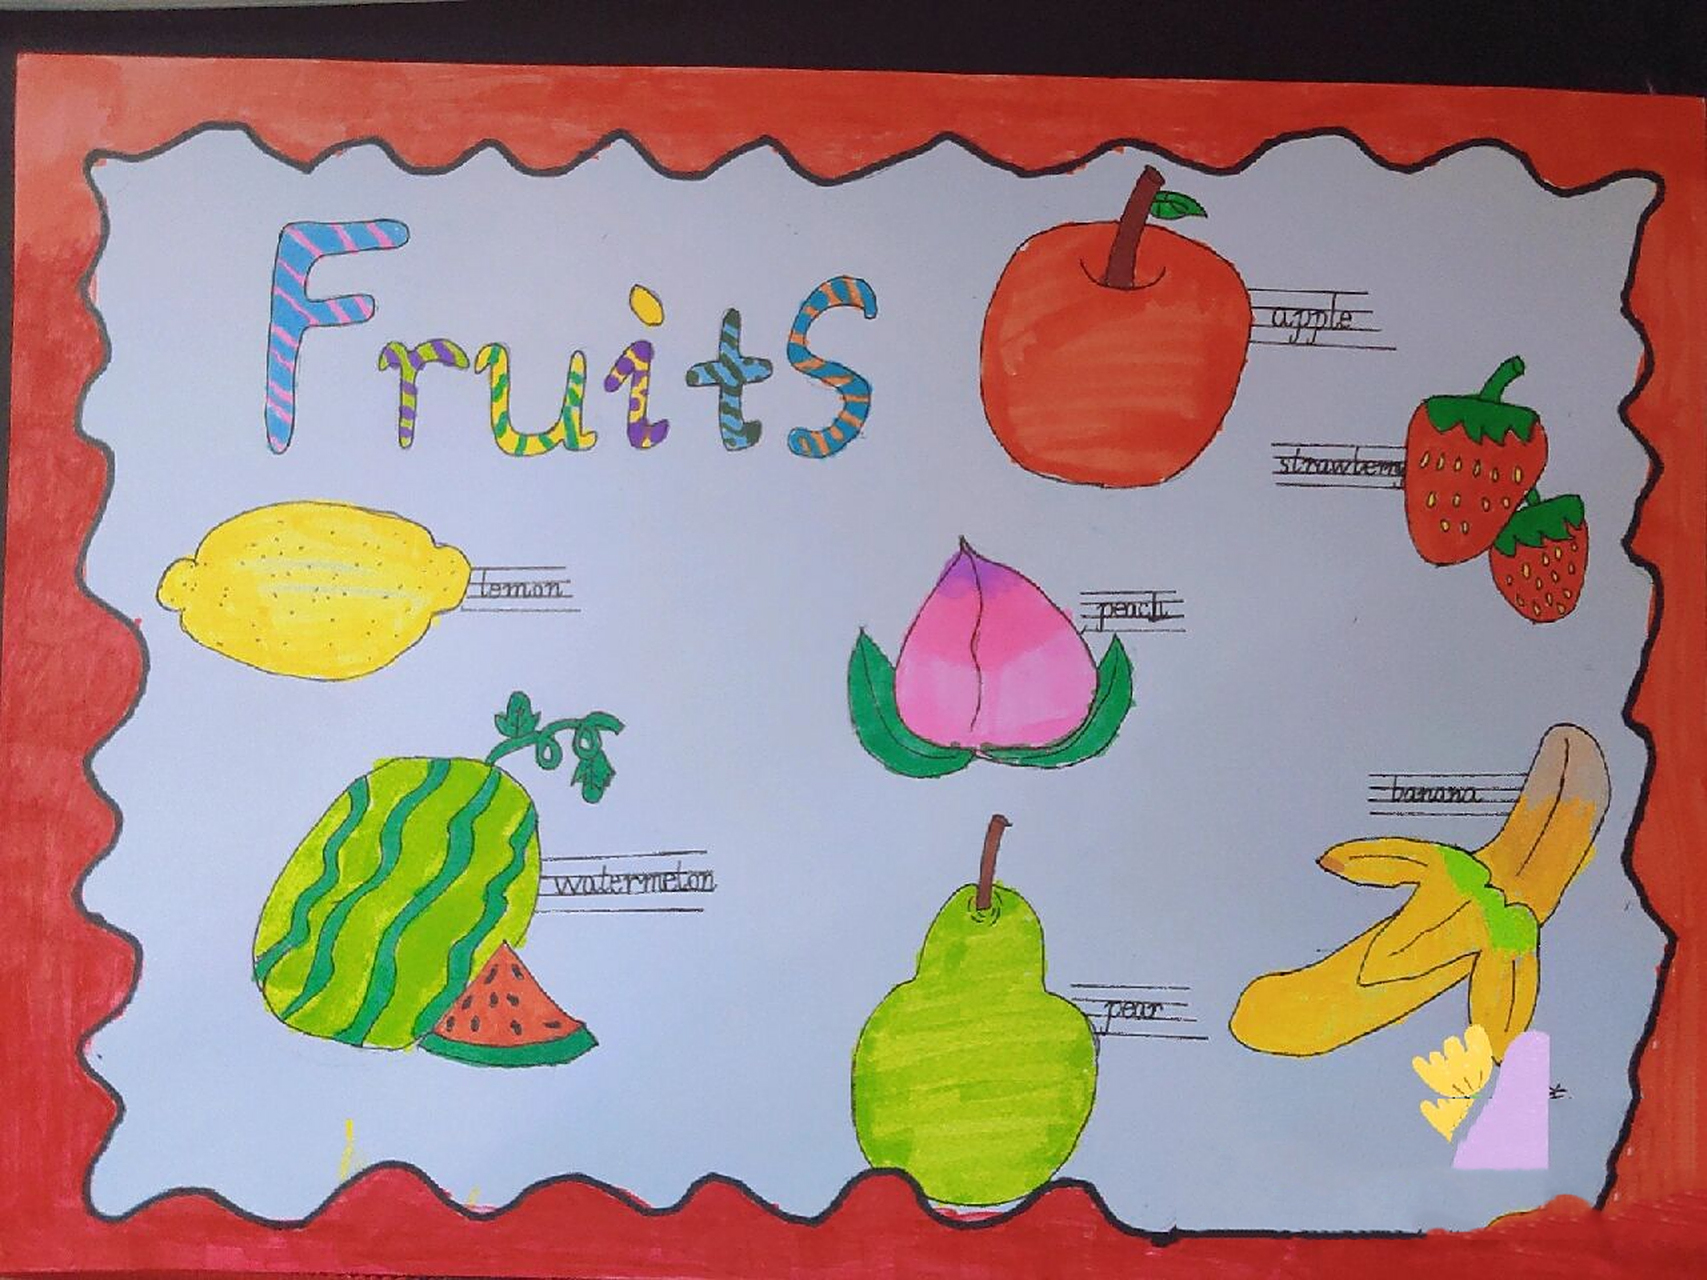 Fruits
apple
strawberry
lemon
peach
banana
watermelon
pear